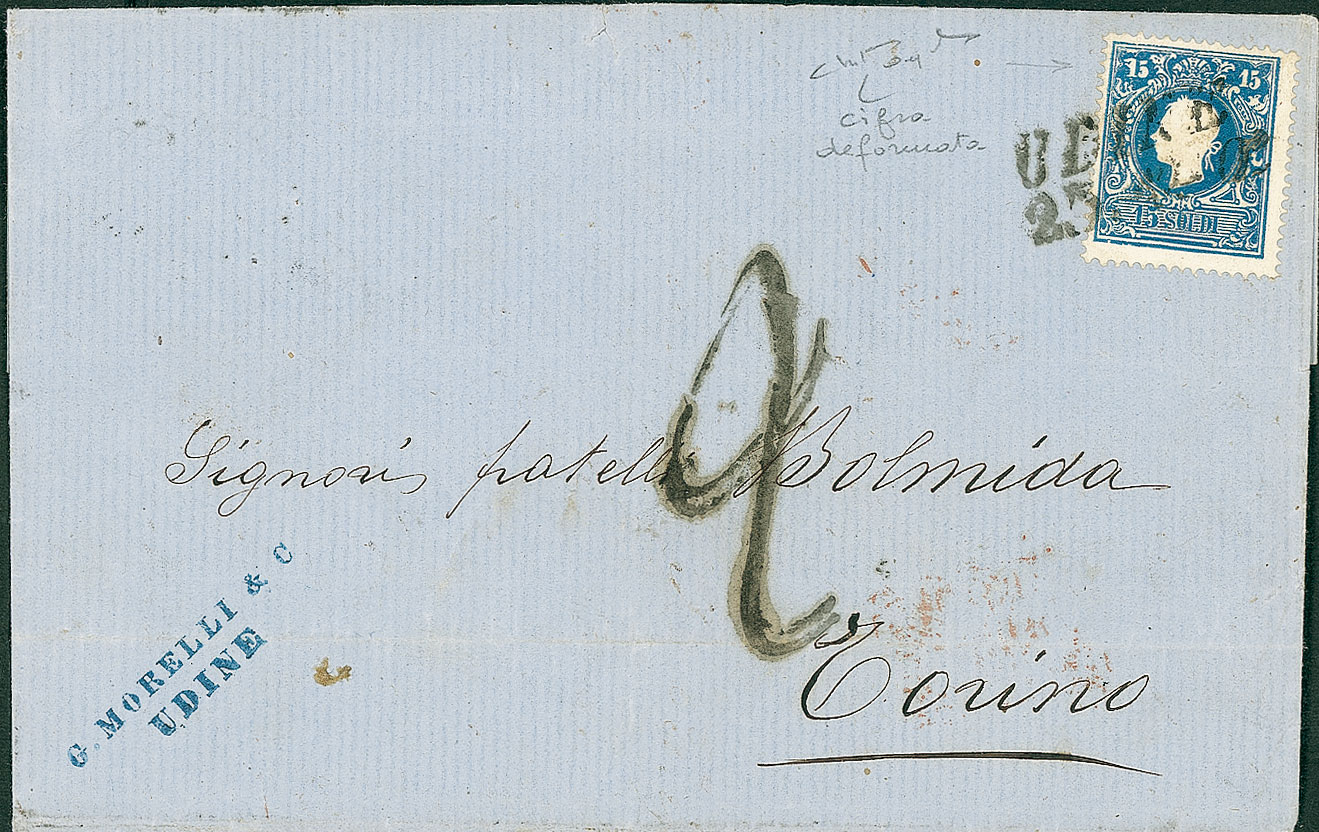 15 15
15 SOLDI
UDINE
cifra
deformata
2
Signori fratelli Bolmida
Torino
G. MORELLI & C
UDINE